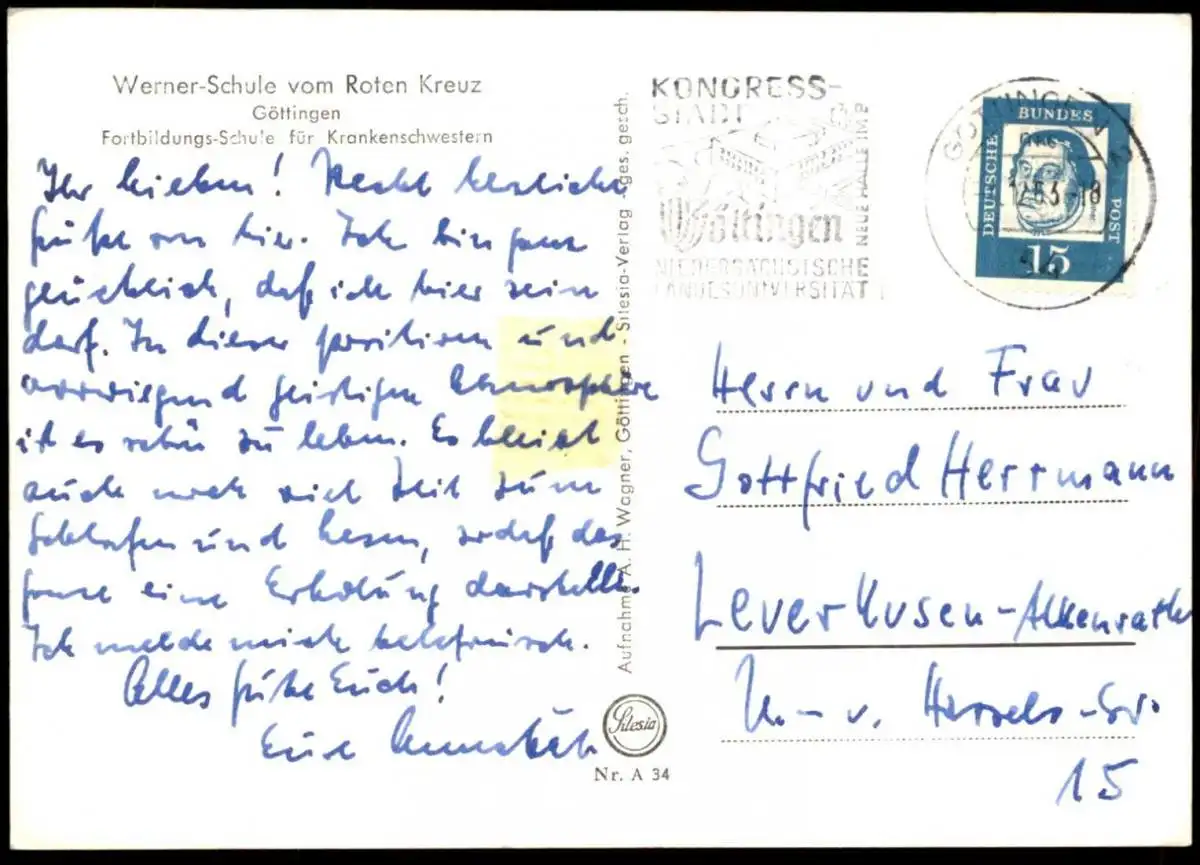 Werner-Schule vom Roten Kreuz
Göttingen
Fortbildungs-Schule für Krankenschwestern
Ihr Lieben! Recht herzliche
Grüße von hier. Ich bin ganz
glücklich, daß ich hier sein
darf. In dieser positiven und
vorwiegend geistigen Atmosphäre
ist es schön zu leben. Es bleibt
auch noch viel Zeit zum
Schlafen und Lesen, sodaß das
ganze eine Erholung darstellt.
Ich melde mich telefonisch.
Alles Gute Euch!
Eure
Aufnahme A. H. Wagner, Göttingen - Silesia-Verlag - ges. gesch.
Silesia
Nr. A 34
KONGRESS-
STADT
Göttingen
NIEDERSÄCHSISCHE
LANDESUNIVERSITÄT
NEUE HALLE IM
GÖTTINGEN
-18
DEUTSCHE
BUNDES
POST
15
Herrn und Frau
Gottfried Herrmann
Leverkusen-Alkenrath
v.
15